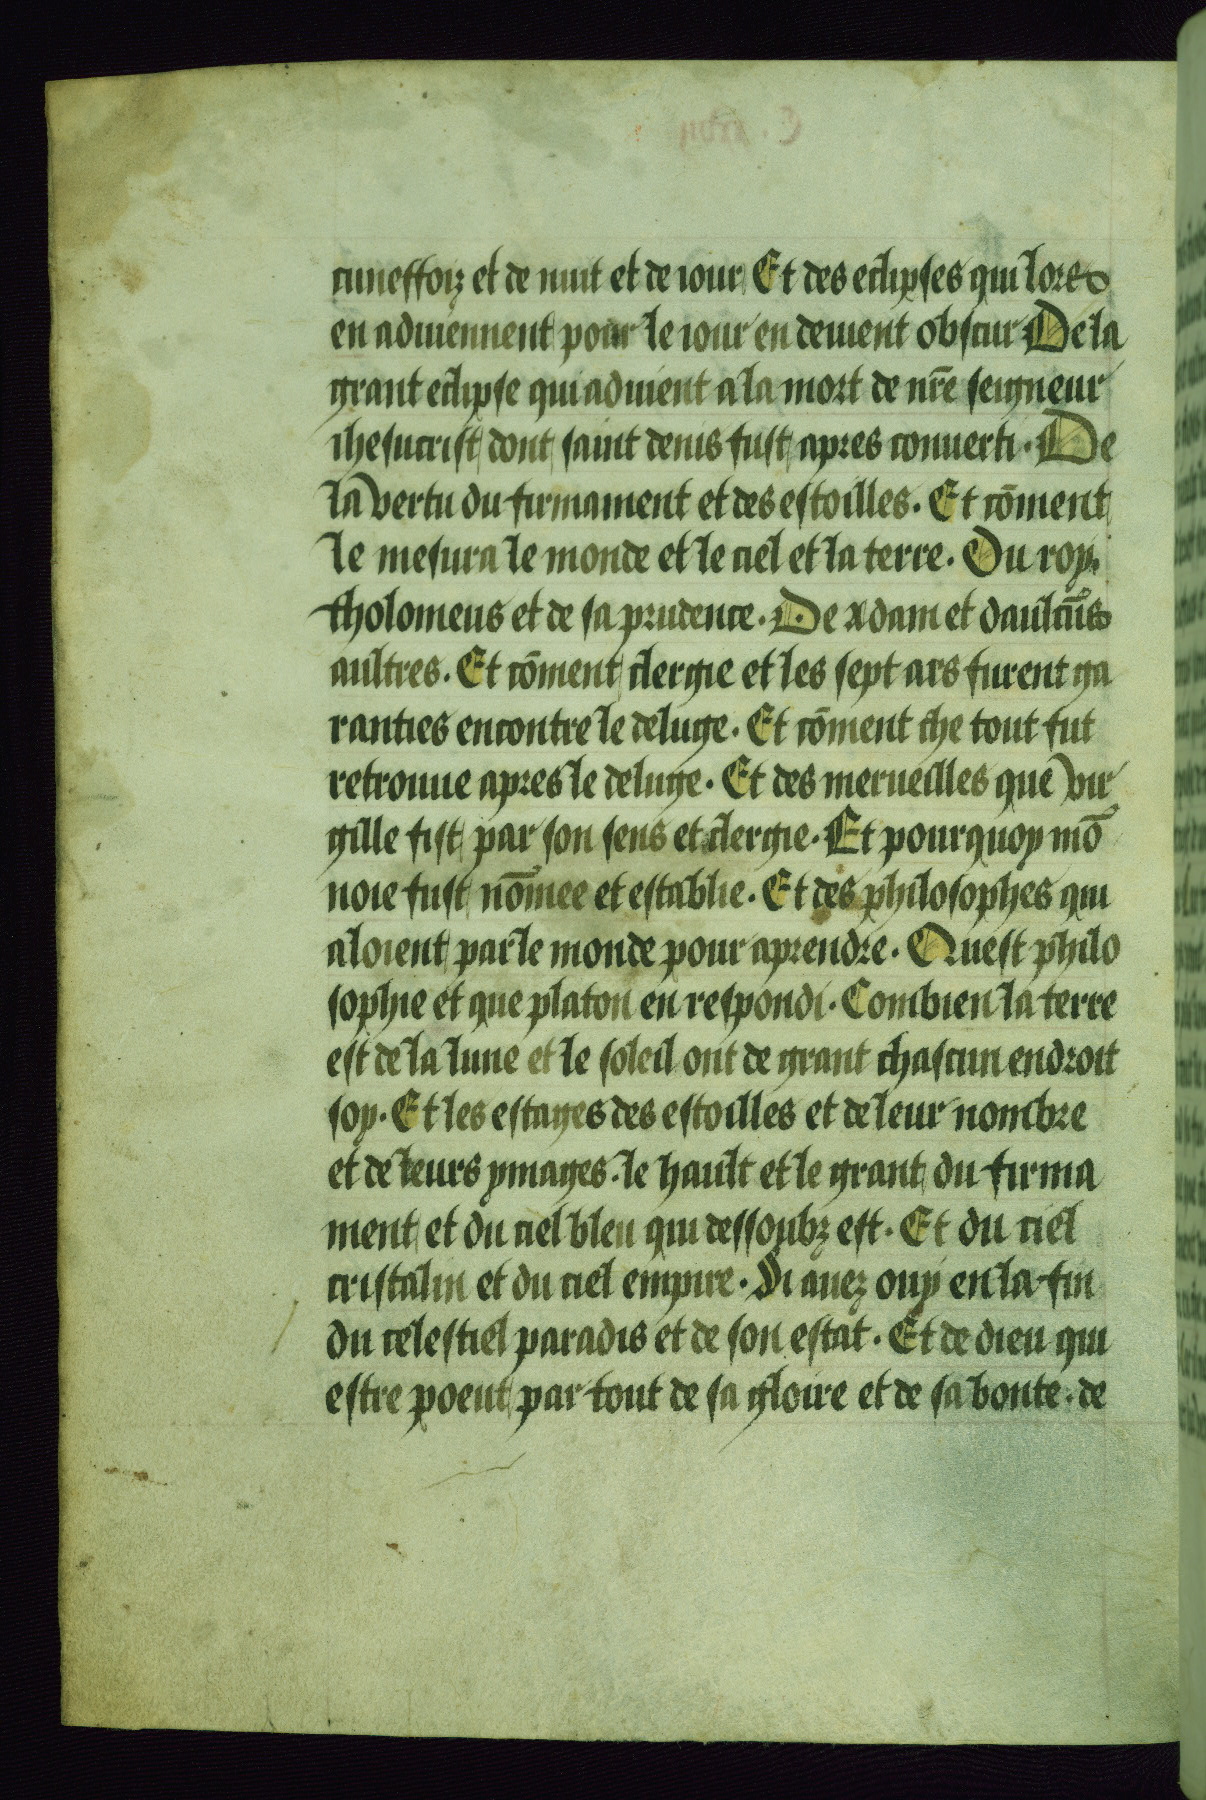 cuneffoiz et de nuit et de iour Et des eclipses qui lors
en aduiennent pour le iour en deuient obscur De la
grant eclipse qui aduient a la mort de nr̄e seigneur
ihesucrist dont saint denis fust apres conuerti. De
la vertu du firmament et des estoilles. Et cōment
le mesura le monde et le ciel et la terre. Du roy
tholomeus et de sa prudence. De Adam et daulcūs
aultres. Et cōment clergie et les sept ars furent ga
ranties encontre le deluge. Et cōment che tout fut
retrouue apres le deluge. Et des merueilles que vir
gille fist par son sens et clergie. Et pourquoy mō
noie fust nōmee et establie. Et des philosophes qui
aloient par le monde pour aprendre. Quest philo
sophie et que platon en respondi. Combien la terre
est de la lune et le soleil ont de grant chascun endroit
soy. Et les estages des estoilles et de leur nombre
et de leurs ymages. le hault et le grant du firma
ment et du ciel bleu qui dessoubz est. Et du ciel
cristalin et du ciel empire. Si auez ouy en la fin
du celestiel paradis et de son estat. Et de dieu qui
estre poeut par tout de sa gloire et de sa bonte. de